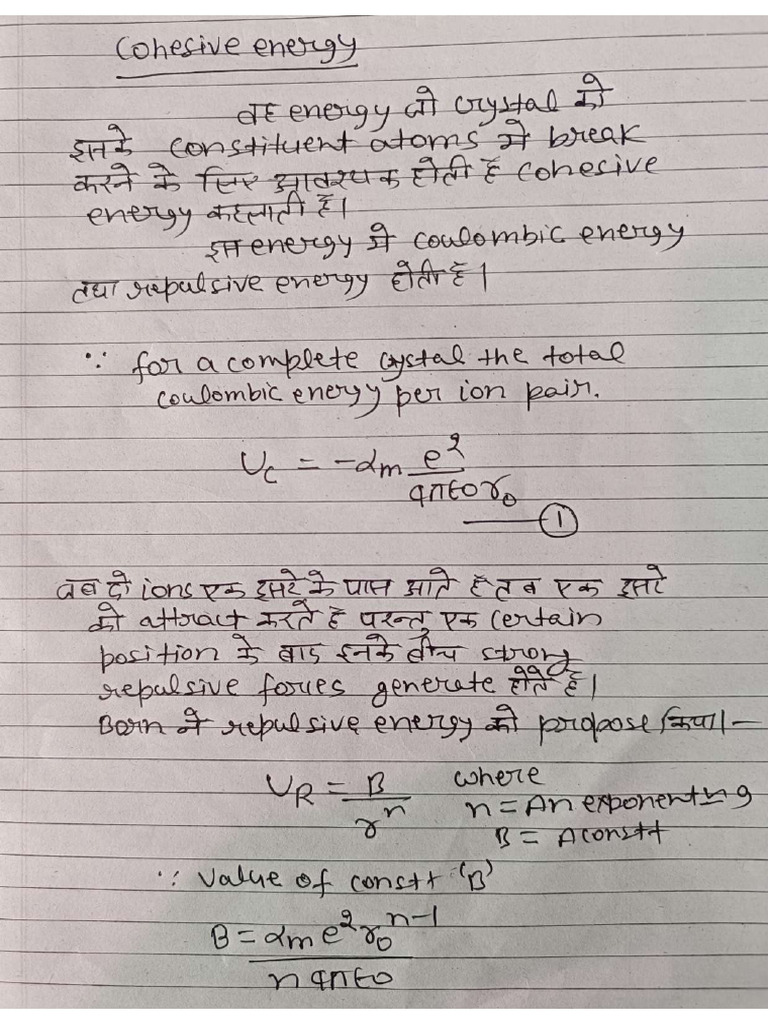 Cohesive energy
वह energy जो crystal को
इसके constituent atoms मे break
करने के लिए आवश्यक होती है cohesive
energy कहलाती है।
इस energy मे coulombic energy
तथा repulsive energy होती है।
∵ for a complete crystal the total
coulombic energy per ion pair.
U_c = -αm e²/4π€0r₀
— ①
जब दो ions एक दूसरे के पास आते है तब एक दूसरे
को attract करते है परन्तु एक certain
position के बाद इनके बीच strong
repulsive forces generate होते है।
Born ने repulsive energy को propose किया।—
U_R = B/r^n where
n = An exponent
B = A constt
∵ value of constt 'B'
B = αm e² r₀^(n-1)/n4π€0